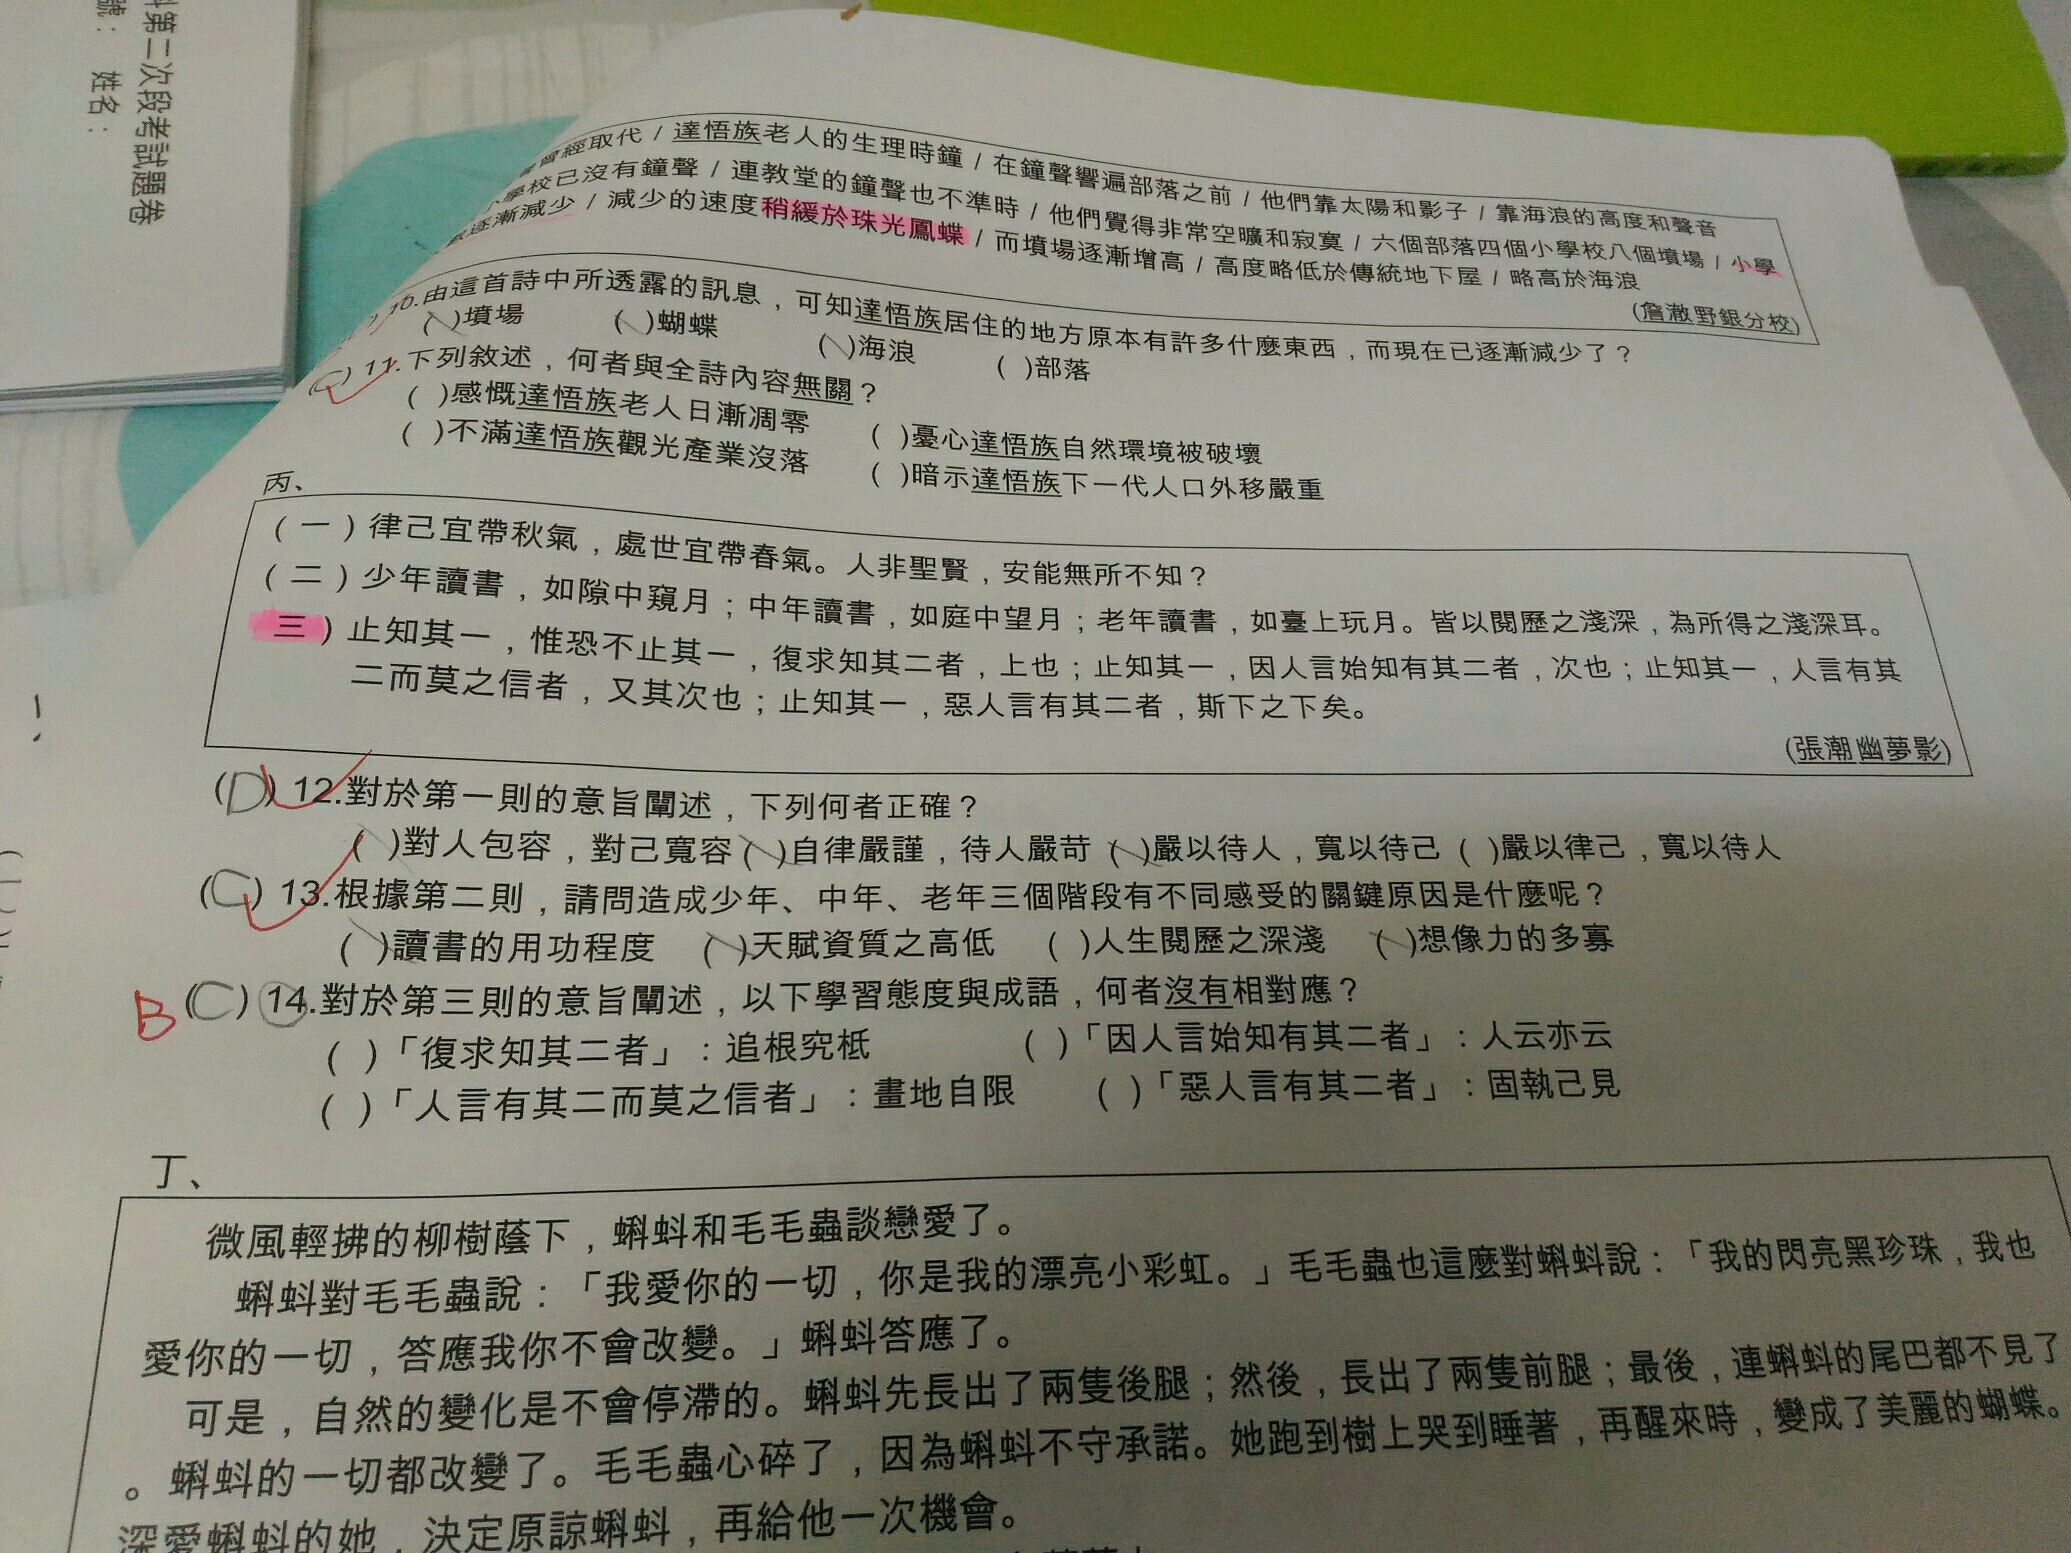 科第二次段考試題卷
號： 姓名：
曾經取代 / 達悟族老人的生理時鐘 / 在鐘聲響遍部落之前 / 他們靠太陽和影子 / 靠海浪的高度和聲音
小學校已沒有鐘聲 / 連教堂的鐘聲也不準時 / 他們覺得非常空曠和寂寞 / 六個部落四個小學校八個墳場 / 小學
逐漸減少 / 減少的速度稍緩於珠光鳳蝶 / 而墳場逐漸增高 / 高度略低於傳統地下屋 / 略高於海浪
(詹澈野銀分校)
( ) 10.由這首詩中所透露的訊息，可知達悟族居住的地方原本有許多什麼東西，而現在已逐漸減少了？
( )墳場 ( )蝴蝶 ( )海浪 ( )部落
(C) 11.下列敘述，何者與全詩內容無關？
( )感慨達悟族老人日漸凋零 ( )憂心達悟族自然環境被破壞
( )不滿達悟族觀光產業沒落 ( )暗示達悟族下一代人口外移嚴重
丙、
(一) 律己宜帶秋氣，處世宜帶春氣。人非聖賢，安能無所不知？
(二) 少年讀書，如隙中窺月；中年讀書，如庭中望月；老年讀書，如臺上玩月。皆以閱歷之淺深，為所得之淺深耳。
三) 止知其一，惟恐不止其一，復求知其二者，上也；止知其一，因人言始知有其二者，次也；止知其一，人言有其
二而莫之信者，又其次也；止知其一，惡人言有其二者，斯下之下矣。
(張潮幽夢影)
(D) 12.對於第一則的意旨闡述，下列何者正確？
( )對人包容，對己寬容 ( )自律嚴謹，待人嚴苛 ( )嚴以待人，寬以待己 ( )嚴以律己，寬以待人
(C) 13.根據第二則，請問造成少年、中年、老年三個階段有不同感受的關鍵原因是什麼呢？
( )讀書的用功程度 ( )天賦資質之高低 ( )人生閱歷之深淺 ( )想像力的多寡
B (C) 14.對於第三則的意旨闡述，以下學習態度與成語，何者沒有相對應？
( )「復求知其二者」：追根究柢 ( )「因人言始知有其二者」：人云亦云
( )「人言有其二而莫之信者」：畫地自限 ( )「惡人言有其二者」：固執己見
丁、
微風輕拂的柳樹蔭下，蝌蚪和毛毛蟲談戀愛了。
蝌蚪對毛毛蟲說：「我愛你的一切，你是我的漂亮小彩虹。」毛毛蟲也這麼對蝌蚪說：「我的閃亮黑珍珠，我也
愛你的一切，答應我你不會改變。」蝌蚪答應了。
可是，自然的變化是不會停滯的。蝌蚪先長出了兩隻後腿；然後，長出了兩隻前腿；最後，連蝌蚪的尾巴都不見了
。蝌蚪的一切都改變了。毛毛蟲心碎了，因為蝌蚪不守承諾。她跑到樹上哭到睡著，再醒來時，變成了美麗的蝴蝶。
深愛蝌蚪的她，決定原諒蝌蚪，再給他一次機會。